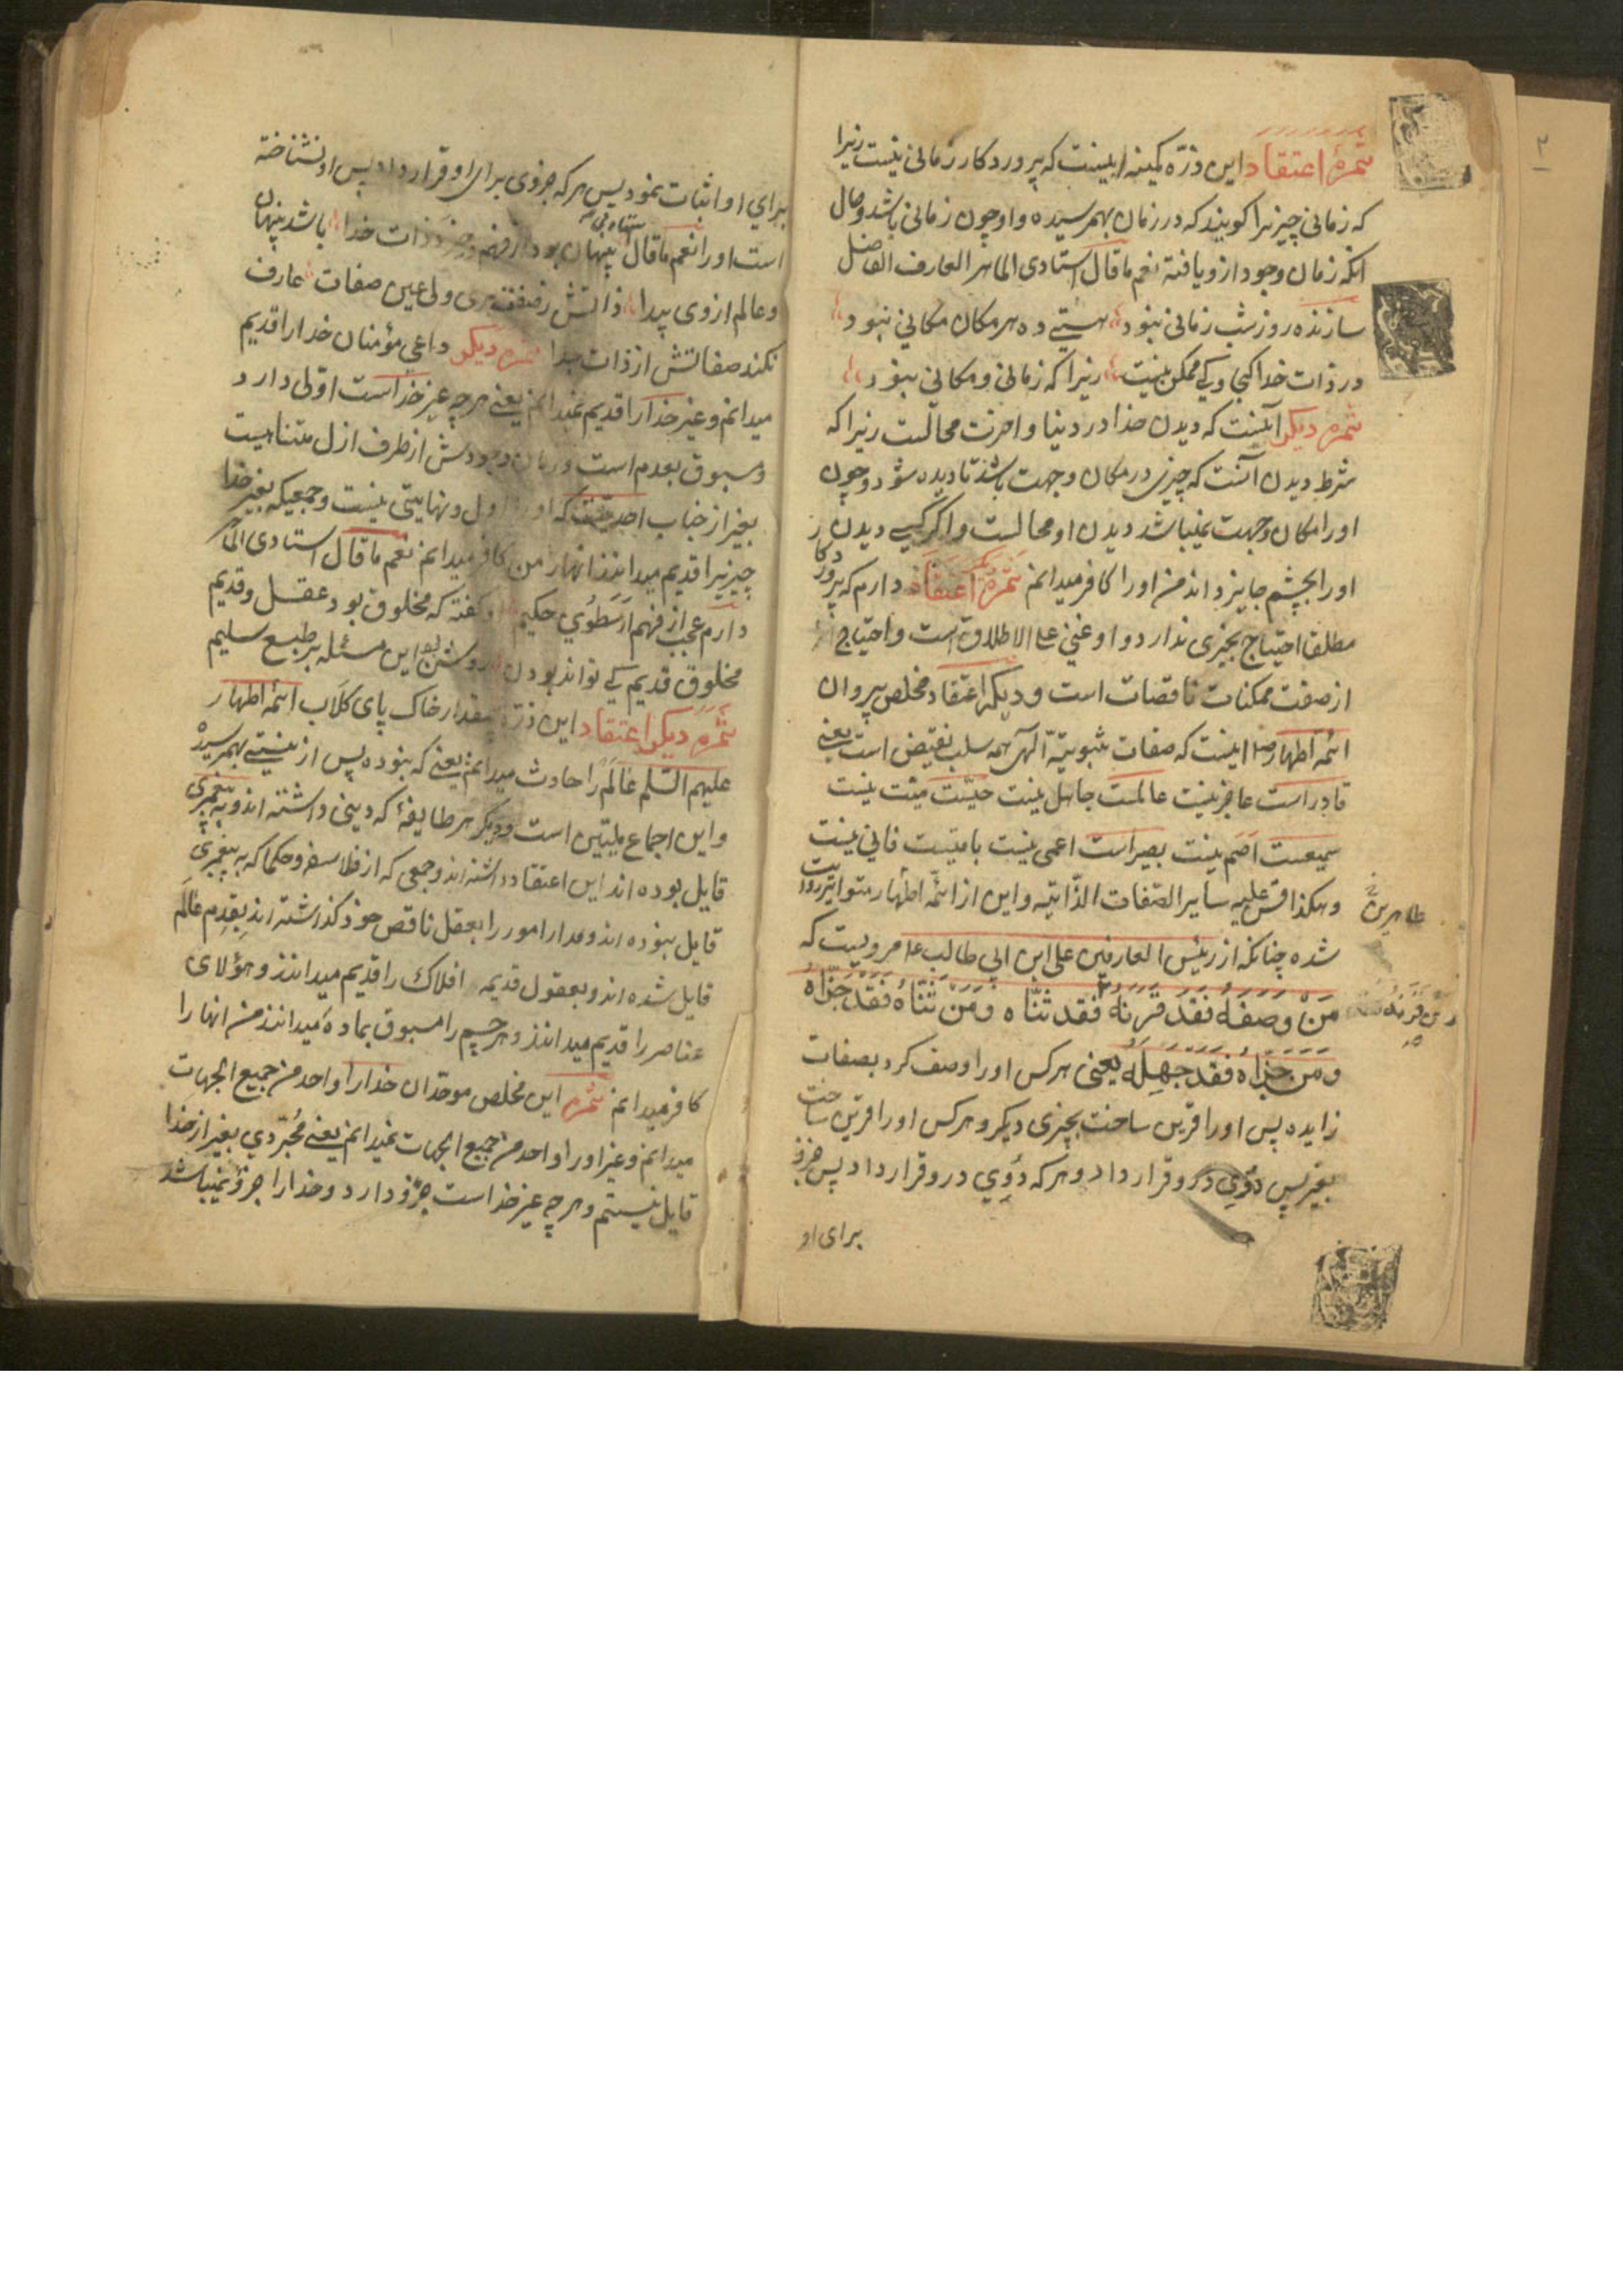 ثمرهٔ اعتقاد این ذرّه کمینه اینست که پروردکار زمانی نیست زیرا
که زمانی چیزیرا کویند که در زمان بهمرسیده و او چون زمانی باشد و حال
انکه زمان وجود ازو یافته نعم ما قال استادی الماهر العارف الفاضل
سازنده روز و شب زمانی نبود هستی ده هر مکان مکانی نبود
در ذات خدا کجا و کی ممکن نیست زیرا که زمانی و مکانی نبود
ثمره دیکر آنست که دیدن خدا در دنیا و اخرت محالست زیرا که
شرط دیدن آنست که چیزی در مکان و جهت باشد تا دیده شود و چون
او را مکان و جهت نمیباشد دیدن او محالست و اکر کسی دیدن
او را بچشم جایز داند من او را کافر میدانم ثمرهٔ دیکر اعتقاد دارم که پروردکار
مطلقا احتیاج بچیزی ندارد و او غنی علی الاطلاق است و احتیاج
از صفت ممکنات ناقصات است و دیکر اعتقاد مخلص پیروان
ائمه اطهار اینست که صفات ثبوتیّه آلهی همه سلب نقیض است یعنی
قادر است عاجز نیست عالمست جاهل نیست حیّست میّت نیست
سمیعست اصم نیست بصیر است اعمی نیست باقیست فانی نیست
و هکذا قس علیه سایر الصّفات الذّاتیّه و این از ائمّه اطهار متواتر روایت
طاهرین
شده چنانکه از رئیس العارفین علی ابن ابی طالب ع مرویست که
مَنْ وَصَفَهُ فَقَدْ قَرَنَهُ فقد ثنّاه وَمَنْ ثَنّاهُ فَقَدْ جَزّاه
و من قرنه
وَمَنْ جَزّاه فَقَدْ جَهِلَهُ یعنی هرکس او را وصف کرد بصفات
زایده پس او را قرین ساخت بچیزی دیکر و هرکس او را قرین ساخت
بغیر پس دوی درو قرار داد و هرکه دوی درو قرار داد پس جزو
برای او
برای او اثبات نمود پس هرکه جزوی برای او قرار داد پس او نشناخته
است او را نعم ما قال پنهان بود از فهم ذات خدا باشد پنهان
و عالم ازوی پیدا ذاتش ز صفت بری ولی عین صفات عارف
نکند صفاتش از ذات جدا ثمره دیکر داعی مؤمنان خدا را قدیم
میدانم و غیر خدا را قدیم نمیدانم یعنی هرچه غیر خداست اوّلی دارد
و مسبوق بعدم است و زمان وجودش از طرف ازل متناهیست
بغیر از جناب احدیّت که او را اول و نهایتی نیست و جمعیکه بغیر خدا
چیزیرا قدیم میدانند انها را من کافر میدانم نعم ما قال استادی
دارم عجب از فهم اَرَسْطوی حکیم کفته که مخلوق بود عقل و قدیم
مخلوق قدیم کی تواند بودن روشن بود این مسئله بر طبع سلیم
ثمره دیکر اعتقاد این ذرّه بیمقدار خاک پای کلاب ائمّه اطهار
علیهم السّلم عالَم را حادث میدانم یعنی که نبوده پس از نیستی بهمرسیده
و این اجماع ملیّین است و دیکر هر طایفهٔ که دینی داشته اند و به پیغمبری
قایل بوده اند این اعتقاد داشته اند و جمعی که از فلاسفه و حکما که به پیغمبری
قایل نبوده اند و مدار امور را بعقل ناقص خود کذاشته اند بقِدم عالم
قایل شده اند و بعقول قدیمه افلاک را قدیم میدانند و هیولای
عناصر را قدیم میدانند و هر جسم را مسبوق بماده میدانند من انها را
کافر میدانم ثمره این مخلص موحّدان خدا را واحد من جمیع الجهات
میدانم و غیر او را واحد من جمیع الجهات نمیدانم یعنی مُجرّدی بغیر از خدا
قایل نیستم و هرچه غیر خداست جزو دارد و خدا را جزو نمیباشد